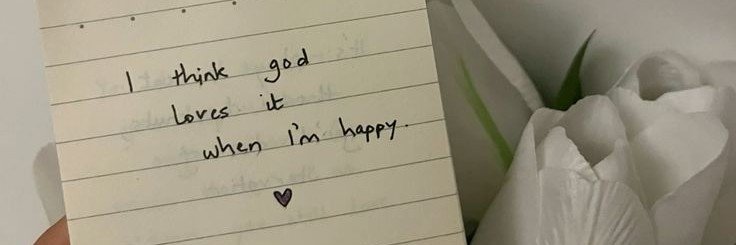 I think god
loves it
when I'm happy.